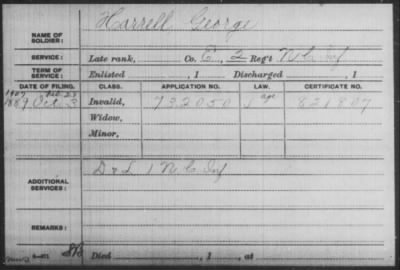 NAME OF SOLDIER: Harrell George
SERVICE: Late rank, Co. E, 2 Reg't N.C. Inf
TERM OF SERVICE: Enlisted , 1 Discharged , 1
DATE OF FILING. CLASS. APPLICATION NO. LAW. CERTIFICATE NO.
1907
1889 Oct 3 Invalid, 732050 age 821807
Widow,
Minor,
ADDITIONAL SERVICES: D & L 1 N.C. Inf
REMARKS:
Died , 1 , at